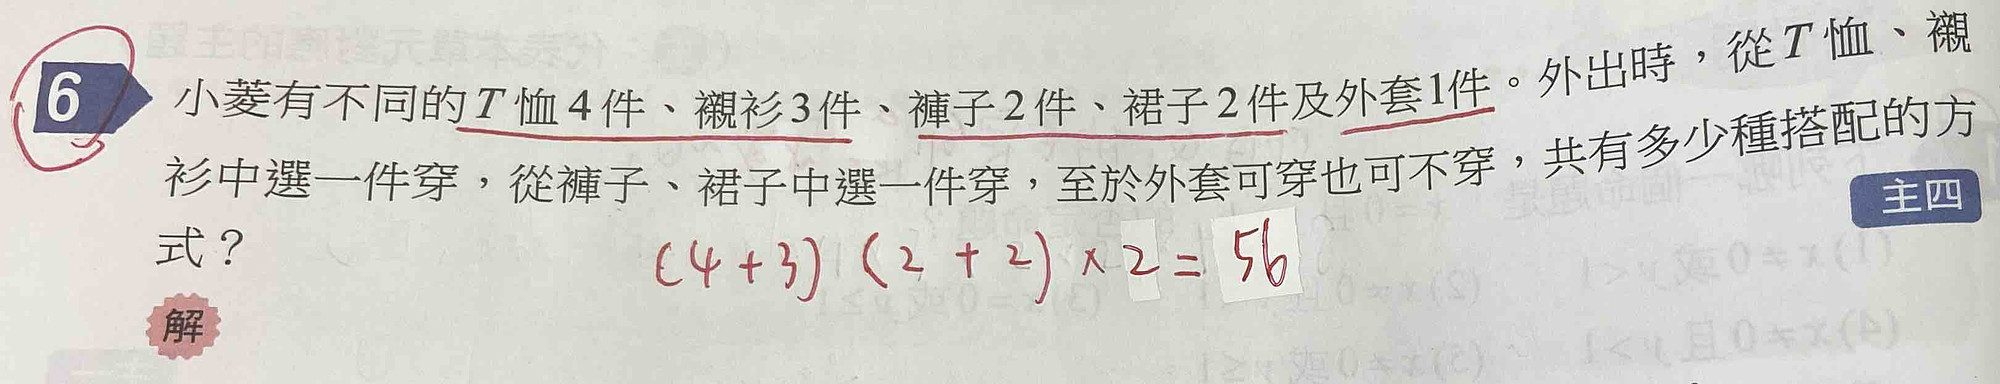 6 小菱有不同的T恤4件、襯衫3件、褲子2件、裙子2件及外套1件。外出時，從T恤、襯
衫中選一件穿，從褲子、裙子中選一件穿，至於外套可穿也可不穿，共有多少種搭配的方
式？
主四
(4+3)(2+2)×2=56
解